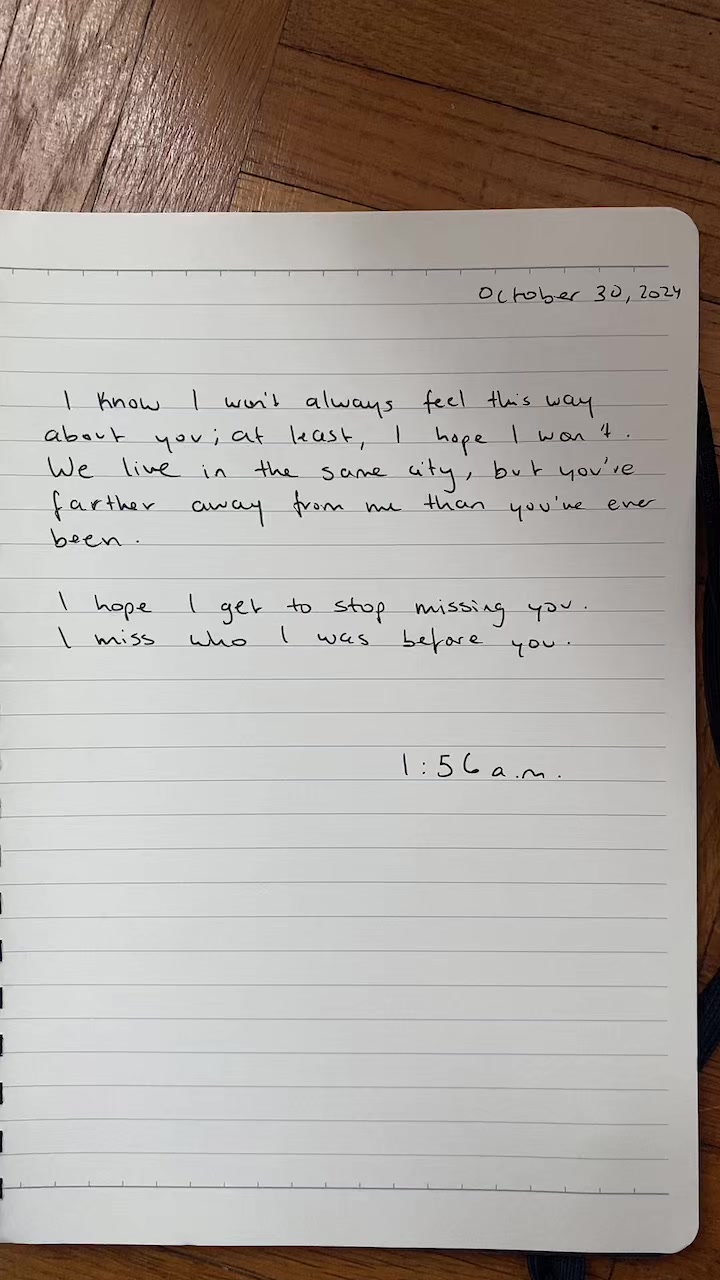 October 30, 2024
I know I won't always feel this way
about you; at least, I hope I won't.
We live in the same city, but you're
farther away from me than you've ever
been.
I hope I get to stop missing you.
I miss who I was before you.
1:56 a.m.